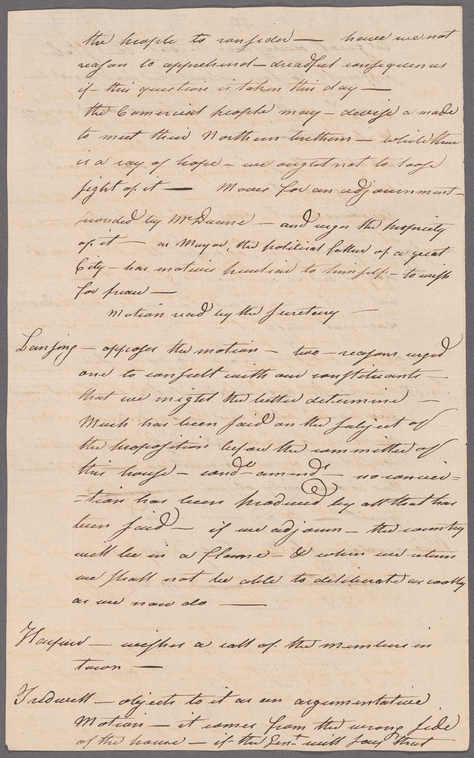 the people to consider — have we not
reason to apprehend — dreadful consequences
if this question is taken this day —
the Comercial people may — devise a mode
to meet their Northern brethren — while there
is a ray of hope — we ought not to lose
sight of it — Moves for an adjournment —
seconded by Mr Duane — and urges the propriety
of it — as Mayor, the political father of a great
City — has motives peculiar to himself — to wish
for peace —
Motion read by the Secretary —
Lansing — opposes the motion — two — reasons urged
one to consult with our constituents —
that we might the better determine —
Much has been said on the subject of
the proposition before the committee of
this house — no convic=
=tion has been produced by all that has
been said — if we adjourn — the country
will be in a flame — & when we return
we shall not be able to deliberate as coolly
as we now do —
— wishes a call of the members in
town —
Tredwell — objects to it as an argumentative
Motion — it comes from the wrong side
of the house — if the Gent. will